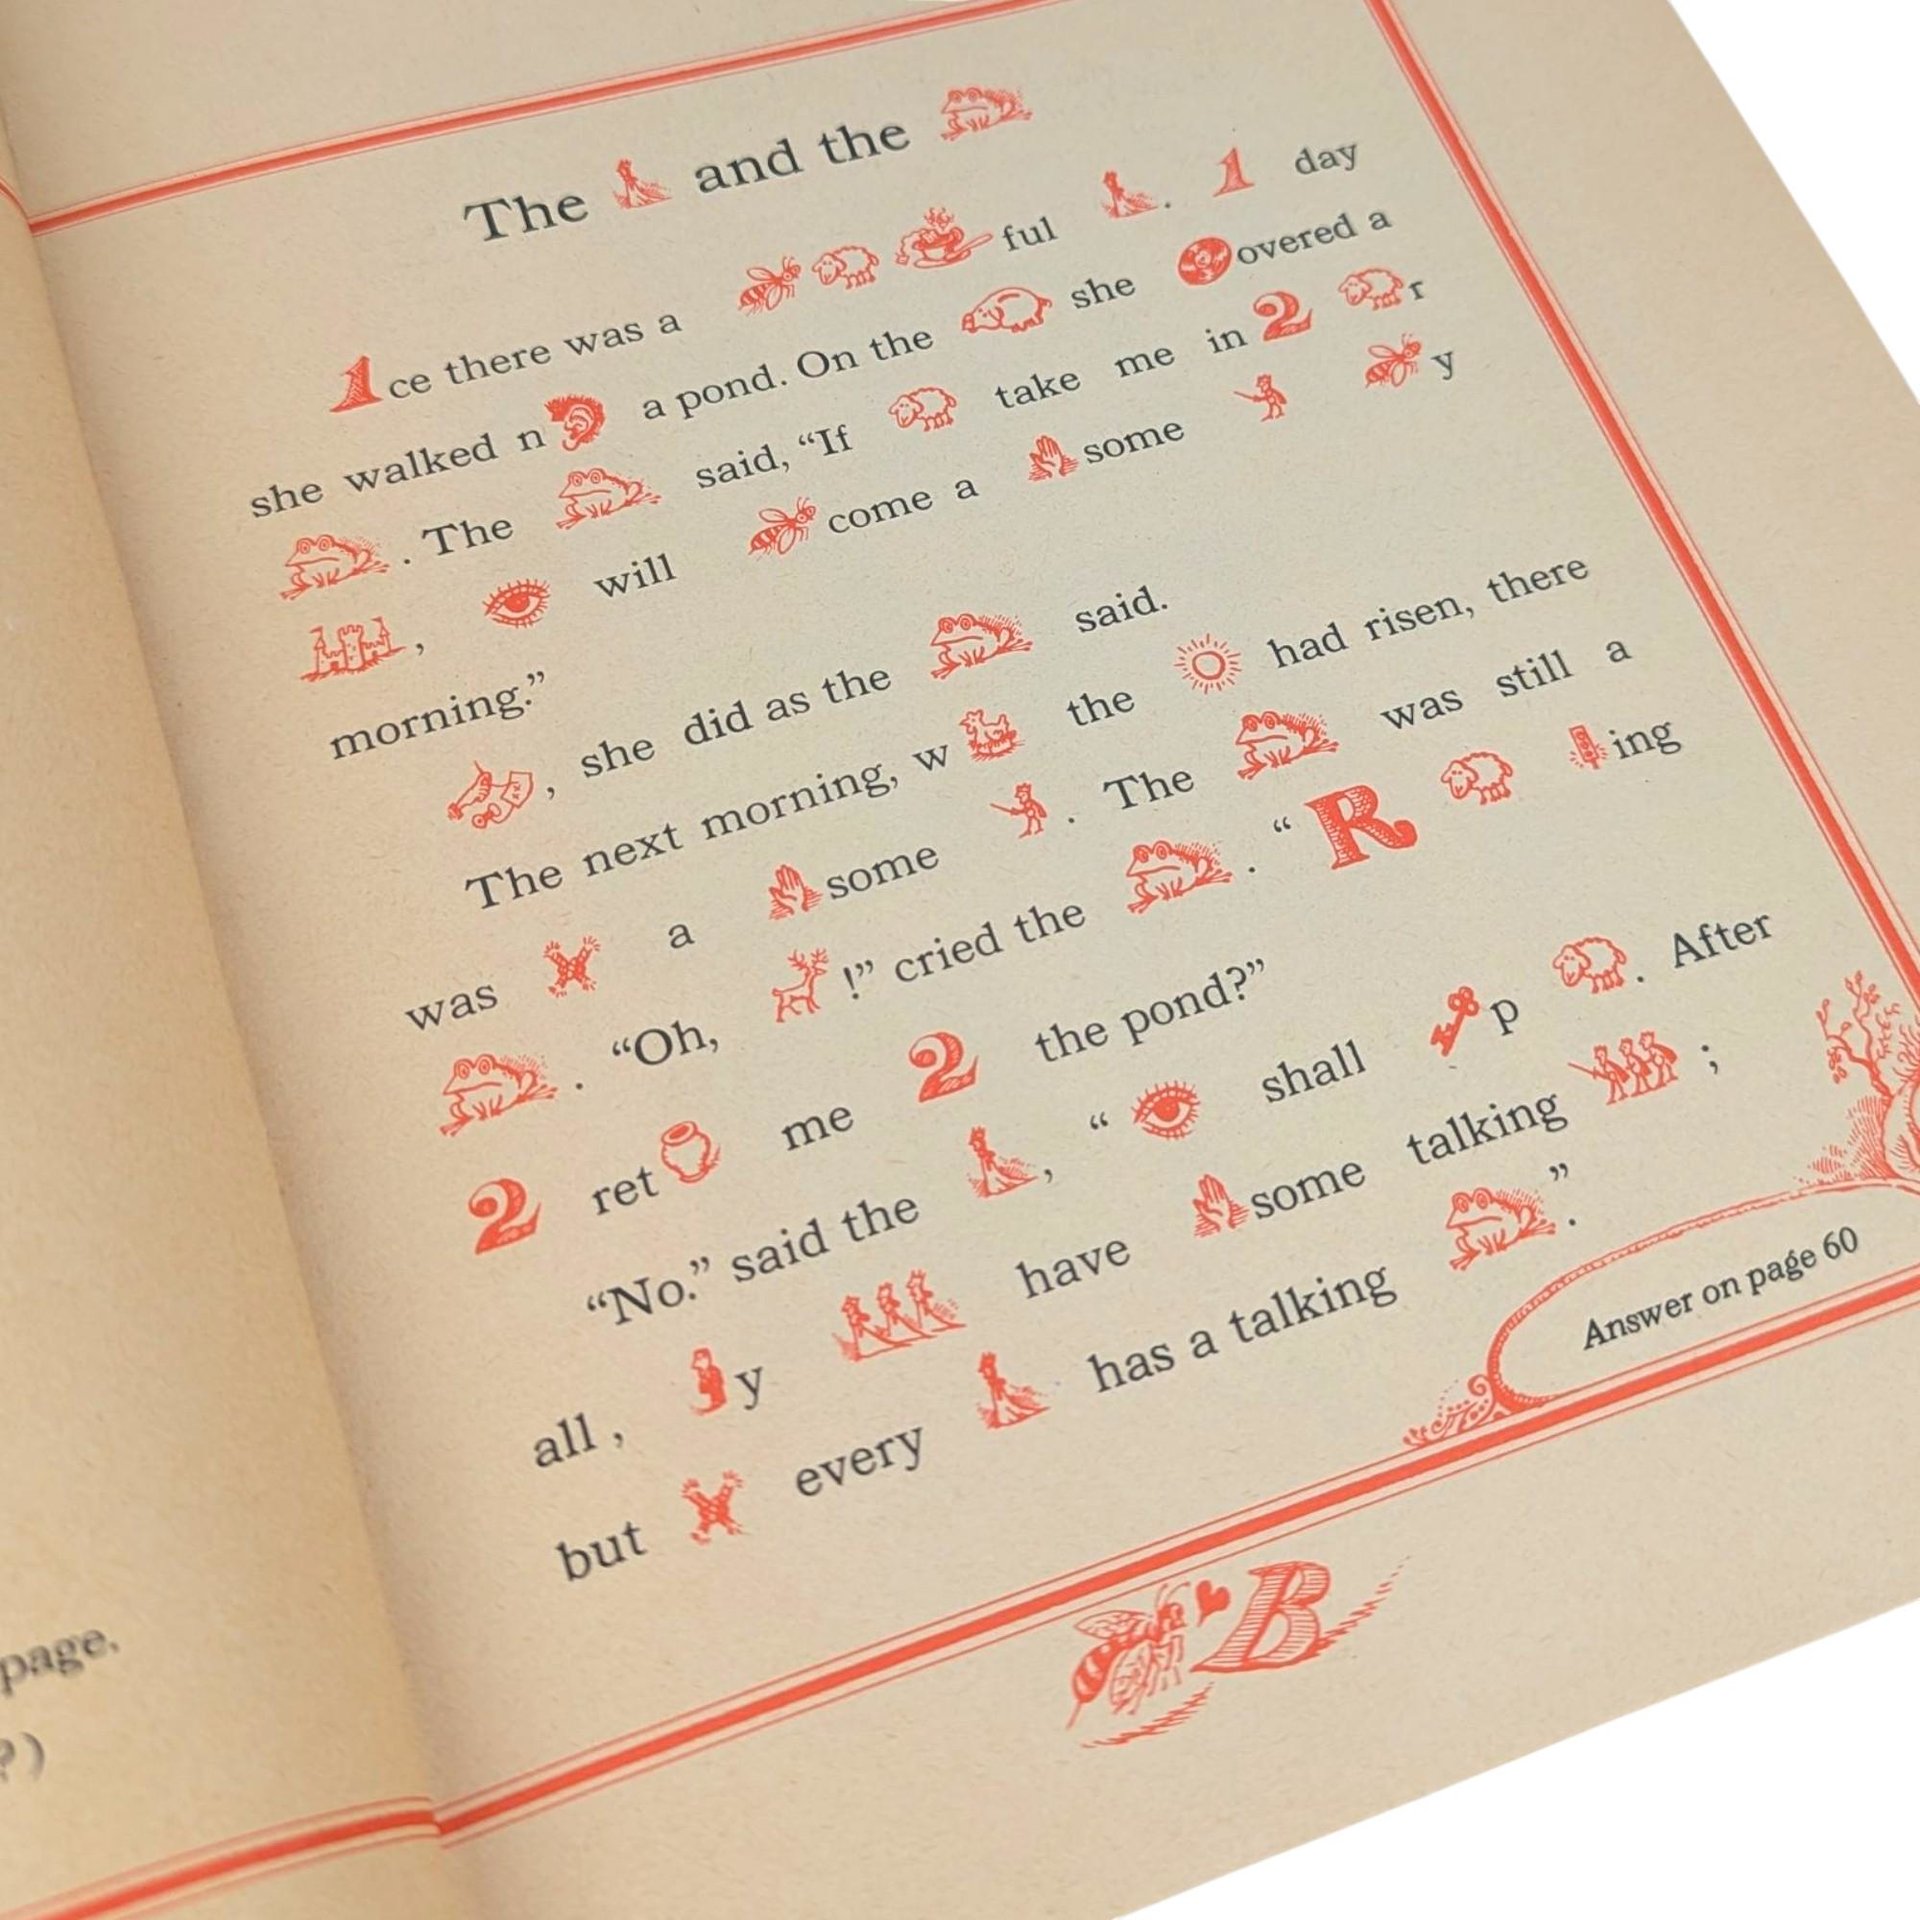 The and the
1ce there was a ful . 1 day
she walked n a pond. On the she overed a
. The said, “If take me in2 r
, will come a some y
morning.”
, she did as the said.
The next morning, w the had risen, there
was a some . The was still a
. “Oh, !” cried the . “R ing
2 ret me 2 the pond?”
“No.” said the , “ shall p . After
all, y have some talking ;
but every has a talking .”
Answer on page 60
B
page.
?)